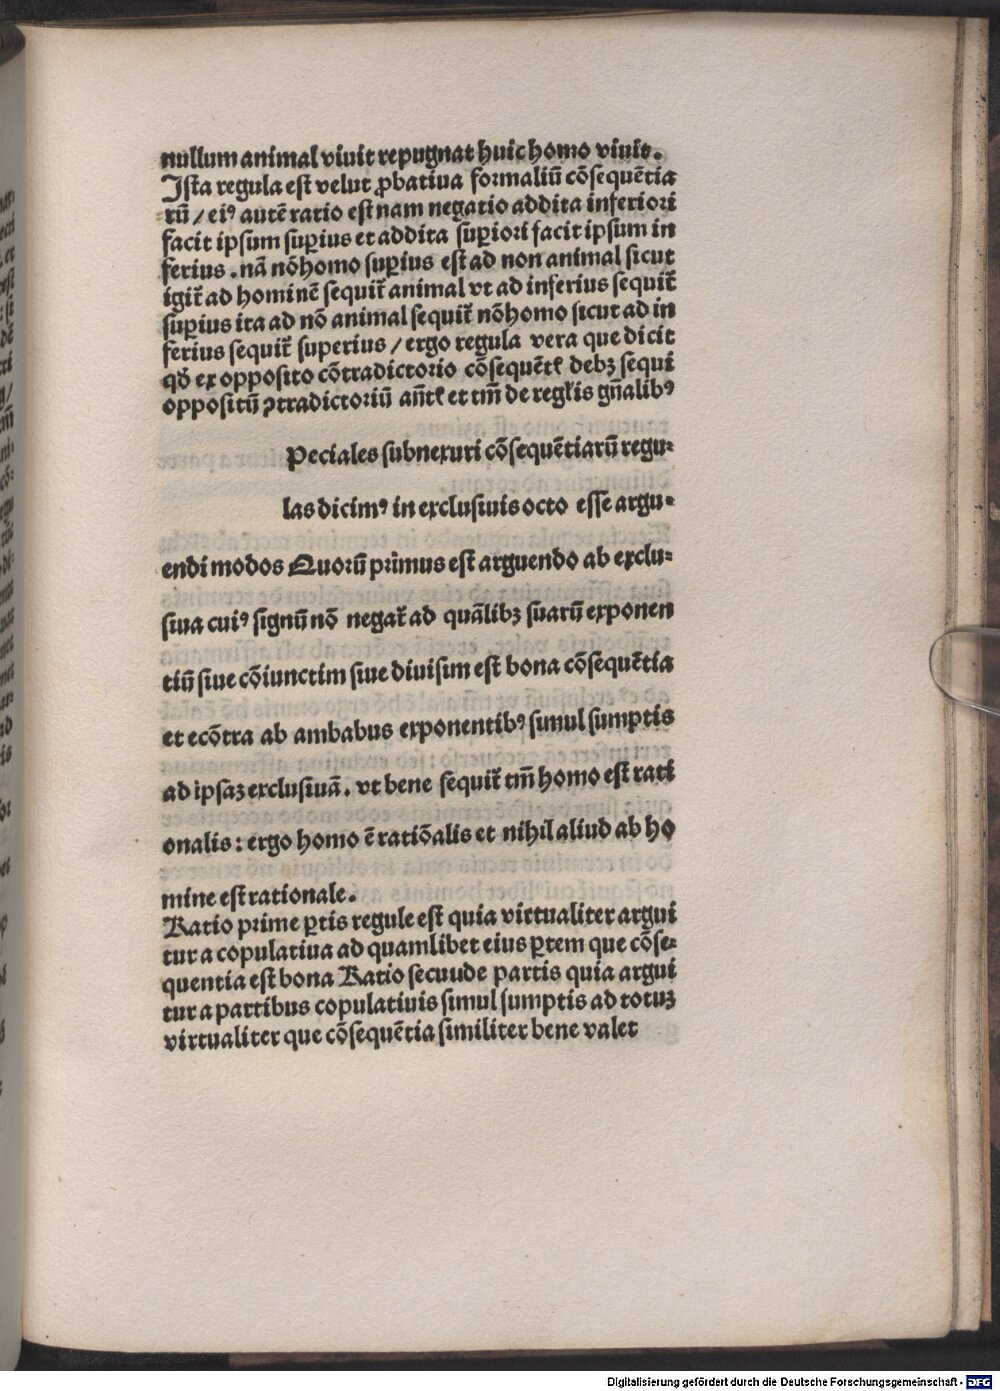 nullum animal viuit repugnat huic homo viuit.
Ista regula est velut ꝓbatiua formaliū cōsequētia
rū / eiꝰ autē ratio est nam negatio addita inferiori
facit ipsum suꝑius et addita suꝑiori facit ipsum in
ferius . nā nōhomo suꝑius est ad non animal sicut
igit᷑ ad hominē sequit᷑ animal vt ad inferius sequit᷑
suꝑius ita ad nō animal sequit᷑ nōhomo sicut ad in
ferius sequit᷑ superius / ergo regula vera que dicit
qđ ex opposito cōtradictorio cōsequētꝭ debꝫ sequi
oppositū ꝯtradictoriū an̄tꝭ et tm̄ de regl̓is gn̄alibꝰ
Peciales subnexuri cōsequētiarū regu⸗
las dicimꝰ in exclusiuis octo esse argu⸗
endi modos Quorū primus est arguendo ab exclu⸗
siua cuiꝰ signū nō negat᷑ ad quālibꝫ suarū exponen
tiū siue cōiunctim siue diuisim est bona cōsequētia
et ecōtra ab ambabus exponentibꝰ simul sumptis
ad ipsaꝫ exclusiuā. vt bene sequit᷑ tm̄ homo est rati
onalis: ergo homo ē ratiōalis et nihil aliud ab ho
mine est rationale.
Ratio prime ꝑtis regule est quia virtualiter argui
tur a copulatiua ad quamlibet eius ꝑtem que cōse⸗
quentia est bona Ratio secuude partis quia argui
tur a partibus copulatiuis simul sumptis ad totuꝫ
virtualiter que cōsequētia similiter bene valet
Digitalisierung gefördert durch die Deutsche Forschungsgemeinschaft - DFG